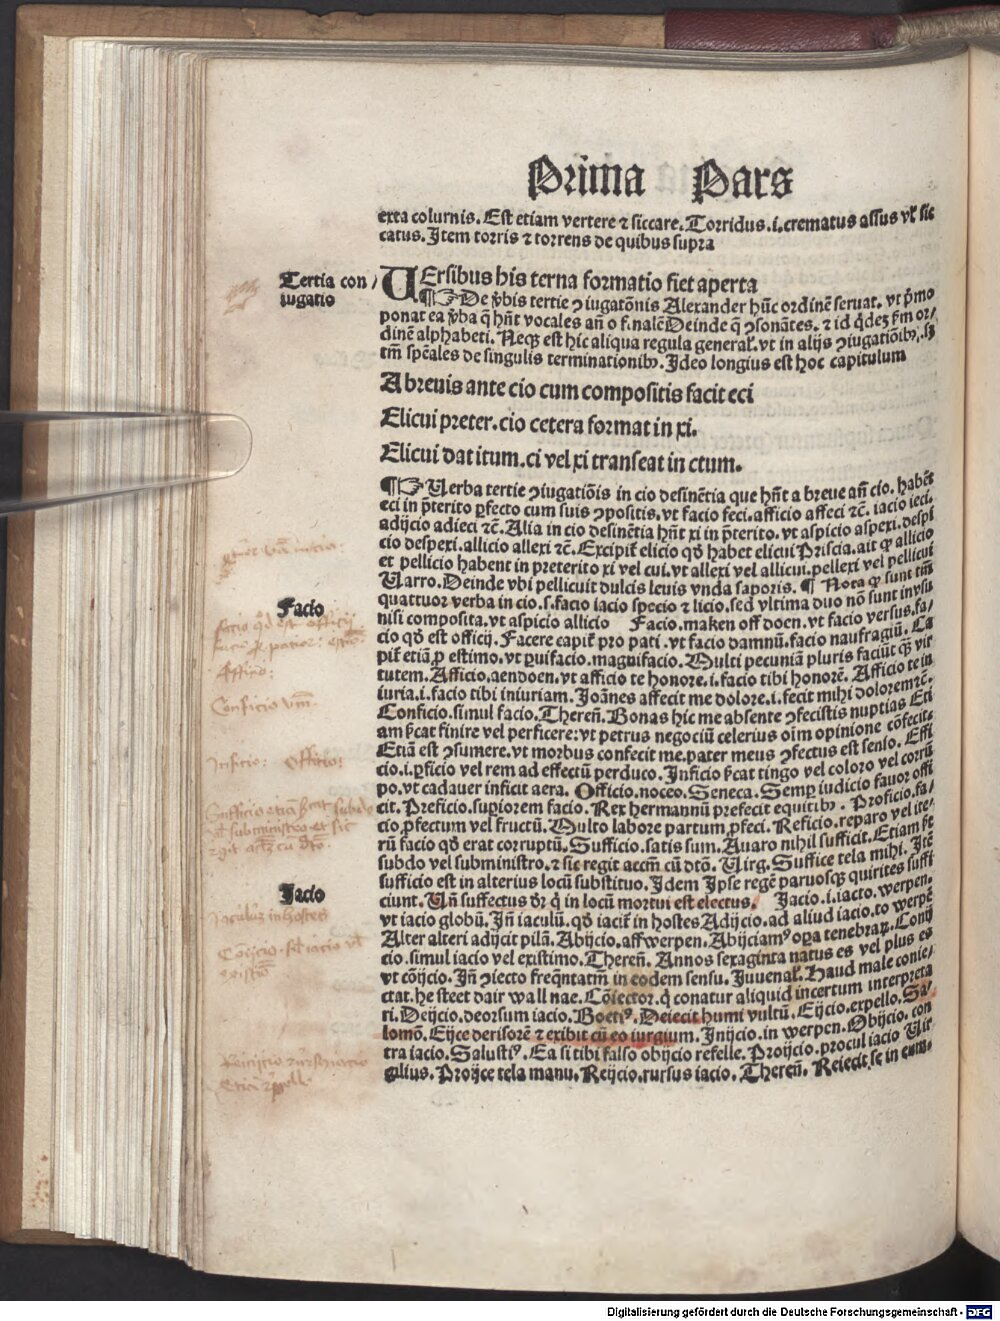 Prima Pars
exta colurnis. Est etiam vertere ⁊ siccare. Torridus .i. crematus assus vl̓ sic
catus. Item torris ⁊ torrens de quibus supra
Tertia con/
iugatio
VErsibus his terna formatio fiet aperta
¶☞ De v̄bis tertie ꝯiugatōnis Alexander hūc ordinē seruat. vt p̄mo
ponat ea v̄ba q̄ hn̄t vocales añ o f.nalē Deinde q̄ ꝯsonātes. ⁊ id q̇dez s̄m or/
dinē alphabeti. Neqꝫ est hic aliqua regula general̓. vt in alijs ꝯiugatiōibꝰ, sꝫ
tm̄ sp̄ēales de singulis terminationibꝰ. Ideo longius est hoc capitulum
A breuis ante cio cum compositis facit eci
Elicui preter. cio cetera format in xi.
Elicui dat itum. ci vel xi transeat in ctum.
¶☞ Uerba tertie ꝯiugatiōis in cio desinētia que hn̄t a breue añ cio. habēt
eci in p̄terito ꝑfecto cum suis ꝯpositis. vt facio feci. afficio affeci ⁊c̄. iacio ieci.
adijcio adieci ⁊c̄. Alia in cio desinētia hn̄t xi in p̄terito. vt aspicio aspexi. despi
cio despexi. allicio allexi ⁊c̄. Excipit̄ elicio qd̄ habet elicui Priscia. ait ꝙ allicio
et pellicio habent in preterito xi vel cui. vt allexi vel allicui. pellexi vel pellicui
Uarro. Deinde vbi pellicuit dulcis leuis vnda saporis. ¶ Nota ꝙ sunt tm̄
quattuor verba in cio .s. facio iacio specio ⁊ licio. sed vltima duo nō sunt in vsu
nisi composita. vt aspicio allicio Facio. maken off doen. vt facio versus. fa/
Facio
cio qd̄ est officij. Facere capit̄ pro pati. vt facio damnū. facio naufragiū. Ca
pit̄ etiā ꝓ estimo. vt ꝑuifacio. magnifacio. Multi pecuniā pluris faciūt q̄ꝫ vir
tutem. Afficio, aendoen. vt afficio te honore .i. facio tibi honorē. Afficio te in
iuria .i. facio tibi iniuriam. Joānes affecit me dolore .i. fecit mihi dolorem ⁊c̄.
Conficio. simul facio. Thereñ. Bonas hic me absente ꝯfecistis nuptias Eti
am ꝑcat finire vel perficere: vt petrus negociū celerius oīm opinione cōfecit.
Etiā est ꝯsumere. vt morbus confecit me. pater meus ꝯfectus est senio. Effi
cio .i. ꝑficio vel rem ad effectū perduco. Inficio ꝑcat tingo vel coloro vel corrū
po. vt cadauer inficit aera. Officio. noceo. Seneca. Semꝑ iudicio fauor offi
cit. Preficio. suꝑiorem facio. Rex hermannū prefecit equitibꝰ. Proficio. fa/
cio ꝓfectum vel fructū. Multo labore partum ꝓfeci. Reficio. reparo vel ite/
rū facio qd̄ erat corruptū. Sufficio. satis sum. Auaro nihil sufficit. Etiam ē
subdo vel subministro. ⁊ sic regit accm̄ cū dtō. Uirg. Suffice tela mihi. Itē
sufficio est in alterius locū substituo. Idem Ipse regē paruosqꝫ quirites suffi
ciunt. Uñ suffectus dr̄ q̄ in locū mortui est electus. Jacio .i. iacto. werpen.
Jacio
vt iacio globū. Jñ iaculū. qd̄ iacit̄ in hostes Adijcio. ad aliud iacio. to werpē
Alter alteri adijcit pilā. Abijcio. affwerpen. Abijciamꝰ oꝑa tenebraꝝ. Conij
cio. simul iacio vel existimo. Thereñ. Annos sexaginta natus es vel plus eo
vt cōijcio. Jñ ꝯiecto freq̄ntatm̄ in eodem sensu. Juuenal̓. Haud male conie/
ctat. he steet dair wall nae. Cōiector. q̄ conatur aliquid incertum interpreta
ri. Deijcio. deorsum iacio. Boetiꝰ. Deiecit humi vultū. Eijcio. expello. Sa/
lomō. Eijce derisorē ⁊ exibit cū eo iurgium. Inijcio. in werpen. Obijcio. con
tra iacio. Salustiꝰ. Ea si tibi falso obijcio refelle. Proijcio. procul iacio Uir
gilius. Proijce tela manu. Reijcio. rursus iacio. Thereñ. Reiecit se in eum.
Afficio:
Conficio
Inficio: Officio:
Digitalisierung gefördert durch die Deutsche Forschungsgemeinschaft - DFG